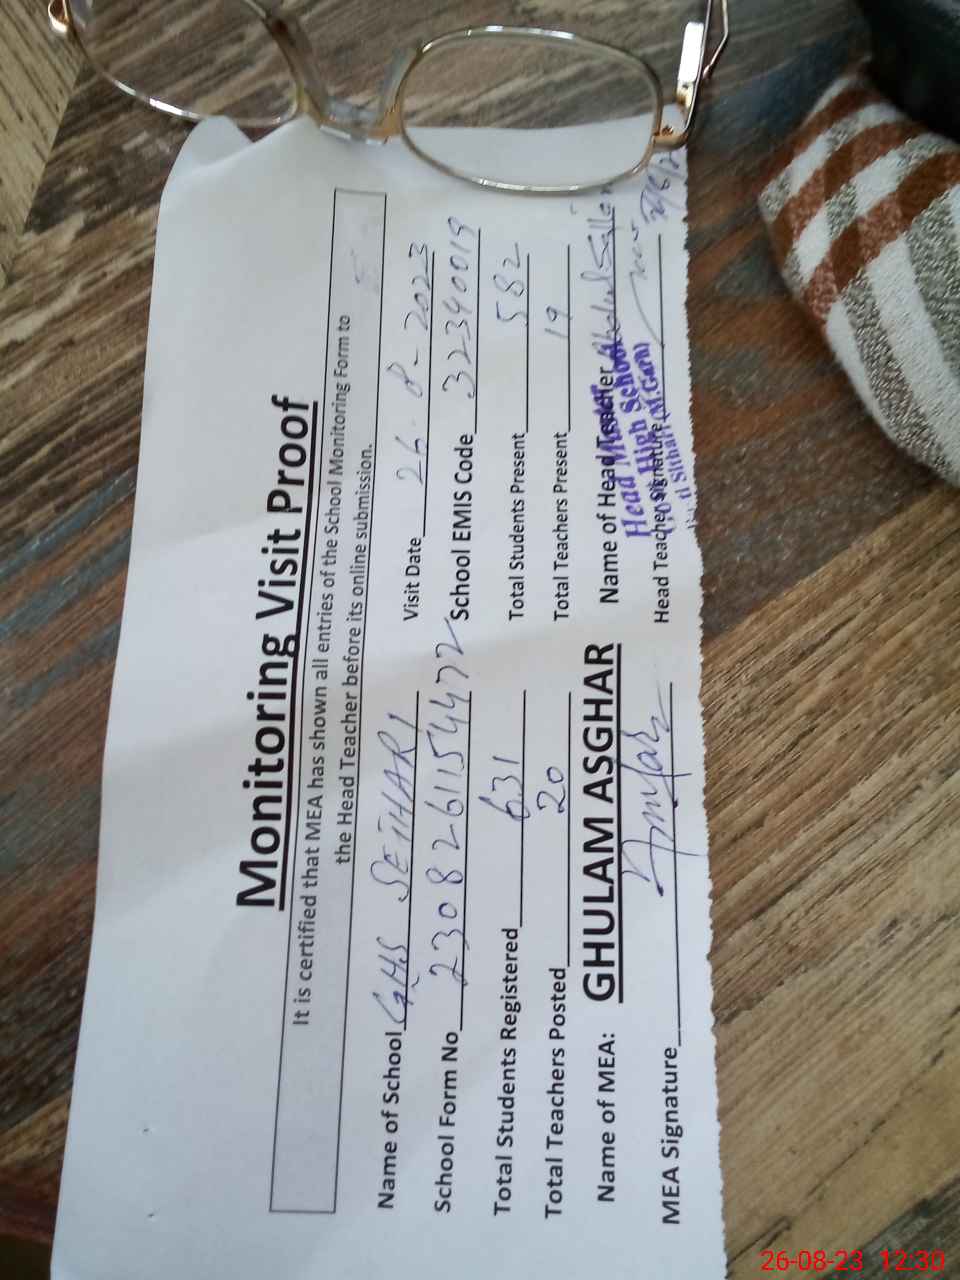 Monitoring Visit Proof
It is certified that MEA has shown all entries of the School Monitoring Form to
the Head Teacher before its online submission.
Name of School GHS SETHARI Visit Date 26-8-2023
School Form No 2308261154472 School EMIS Code 32340019
Total Students Registered 631 Total Students Present 582
Total Teachers Posted 20 Total Teachers Present 19
Name of MEA: GHULAM ASGHAR Name of Head Teacher
Head Master
High School
MEA Signature Head Teacher Signature
26-08-23 12:30